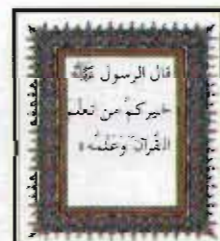 قال الرسول ﷺ
«خيركم من تعلم
القرآن وَعَلَّمَه»